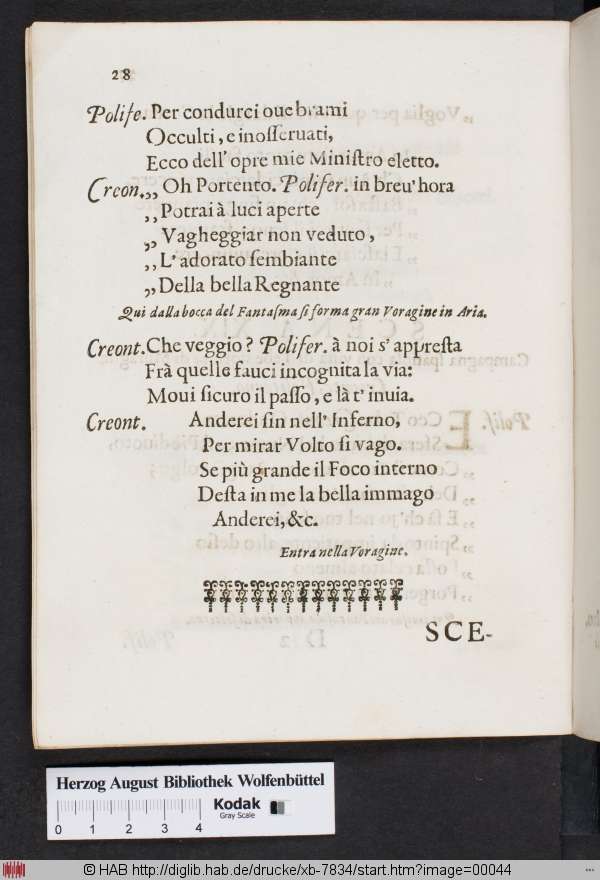 28
Polife. Per condurci oue brami
Occulti, e inosseruati,
Ecco dell' opre mie Ministro eletto.
Creon. ,, Oh Portento. Polifer. in breu' hora
,, Potrai à luci aperte
,, Vagheggiar non veduto,
,, L' adorato sembiante
,, Della bella Regnante
Qui dalla bocca del Fantasma si forma gran Voragine in Aria.
Creont. Che veggio? Polifer. à noi s' appresta
Frà quelle fauci incognita la via:
Moui sicuro il passo, e là t' inuia.
Creont. Anderei sin nell' Inferno,
Per mirar Volto si vago.
Se più grande il Foco interno
Desta in me la bella immago
Anderei, &c.
Entra nella Voragine.
SCE-
Herzog August Bibliothek Wolfenbüttel
Kodak
Gray Scale
0 1 2 3 4
© HAB http://diglib.hab.de/drucke/xb-7834/start.htm?image=00044